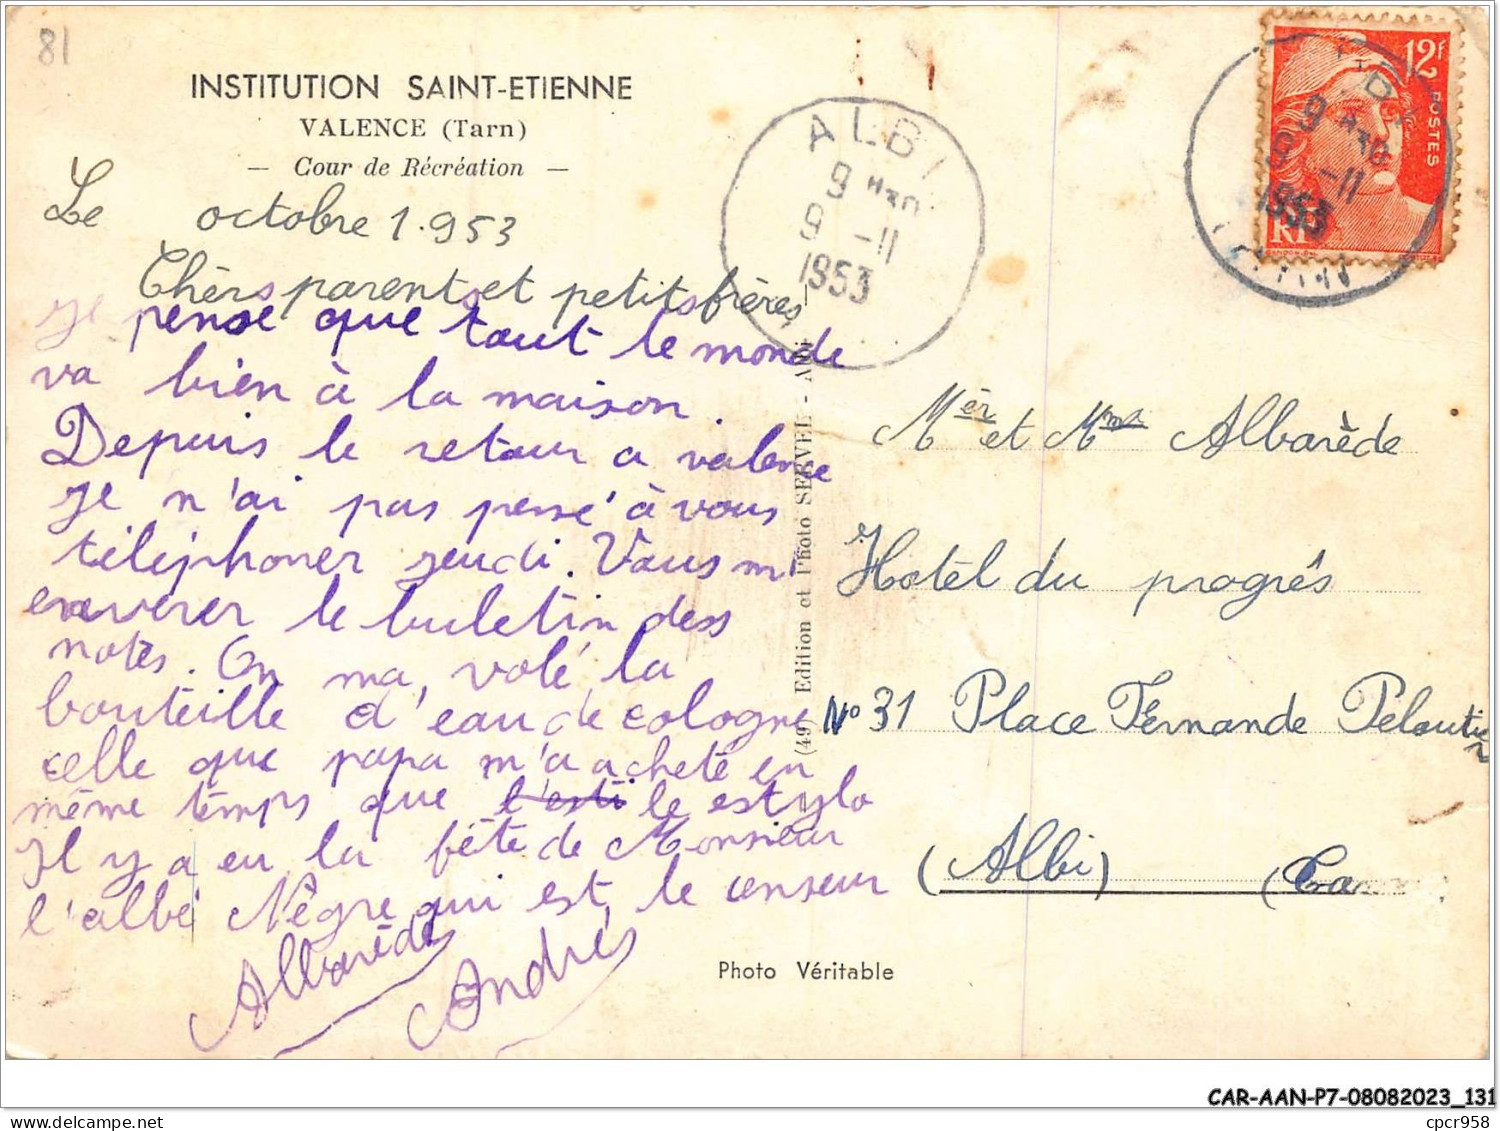 81
INSTITUTION SAINT-ETIENNE
VALENCE (Tarn)
— Cour de Récréation —
Le octobre 1.953
Chèrs parents et petits frères
je pense que tout le monde
va bien à la maison.
Depuis le retour a valence
je n'ai pas pensé à vous
téléphoner jeudi. Vous m'
enverer le buletin dess
notes. On ma, volé la
bouteille d'eau de cologne
celle que papa m'a acheté en
même temps que l'esti le estylo
Il y a eu la fête de Monsieur
l'albé Nêgre qui est le censeur
Albarède André
ALBI
9 H30
9 -11
1953
(49) Edition et Photo SERVEL - ALBI
12f
POSTES
RF
9 H30
9 -11
1953
Mer et Mme Albarède
Hotél du progrés
N° 31 Place Fernande Peloutier
(Albi) (Tarn
Photo Véritable
CAR-AAN-P7-08082023_131
cpcr958